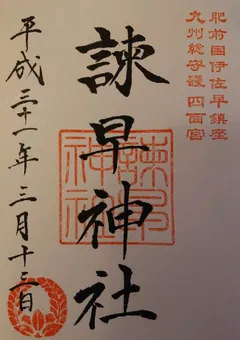 肥前国伊佐早鎮座
九州総守護四面宮
諫早神社
諫早神社
平成三十一年三月十三日